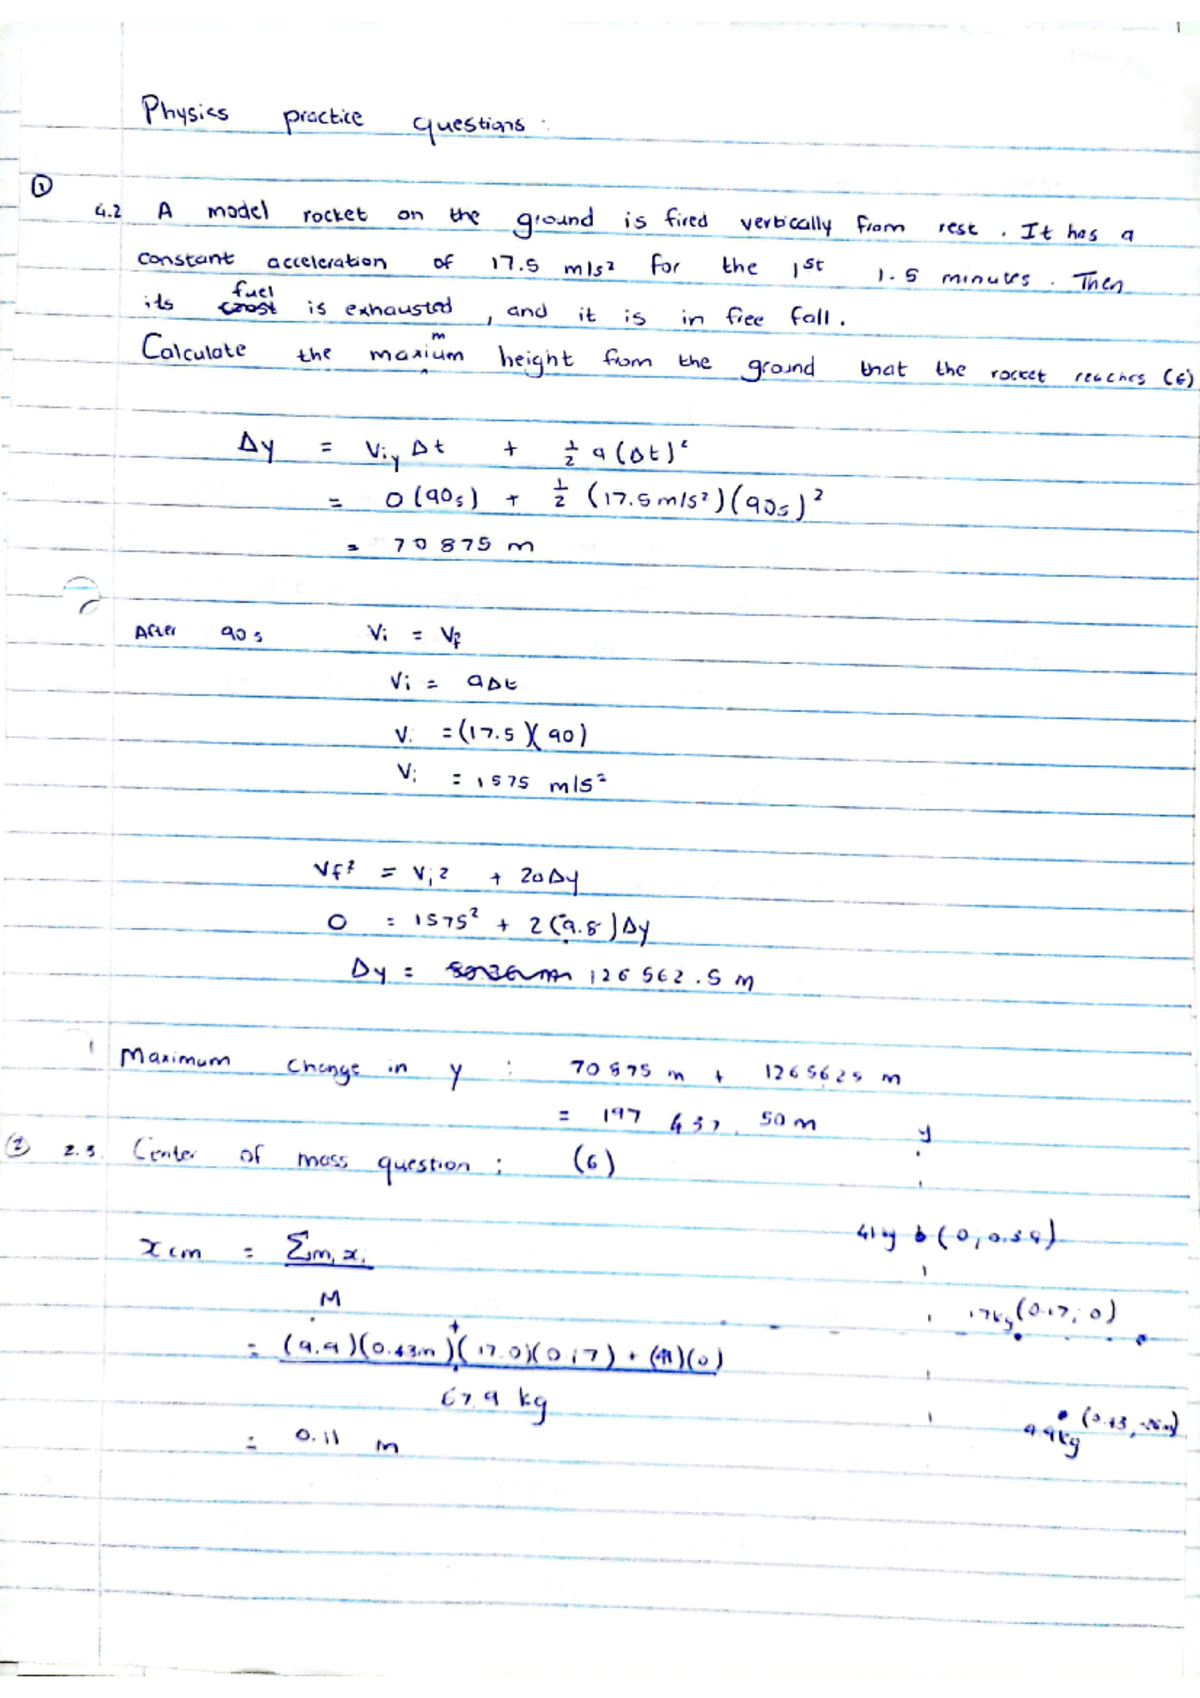 Physics practice questions:
①
4.2 A model rocket on the ground is fired vertically from rest. It has a
constant acceleration of 17.5 m/s² for the 1st 1.5 minutes. Then
its fuel is exhausted, and it is in free fall.
Calculate the maximum height from the ground that the rocket reaches (6)
Δy = Viy Δt + ½ a (Δt)²
= 0 (90s) + ½ (17.5 m/s²)(90s)²
= 70 875 m
After 90s Vi = Vf
Vi = aΔt
Vi = (17.5)(90)
Vi = 1575 m/s²
Vf² = Vi² + 2aΔy
0 = 1575² + 2(-9.8)Δy
Δy = 126 562.5 m
Maximum change in y : 70 875 m + 126562.5 m
= 197 437.50 m
② 2.3. Center of mass question : (6)
y
41kg (0, 0.39)
xcm = Σmixi
M
17kg (0.17, 0)
= (9.9)(0.43m) + (17.0)(0.17) + (41)(0)
67.9 kg
9.9kg (0.43,
= 0.11 m